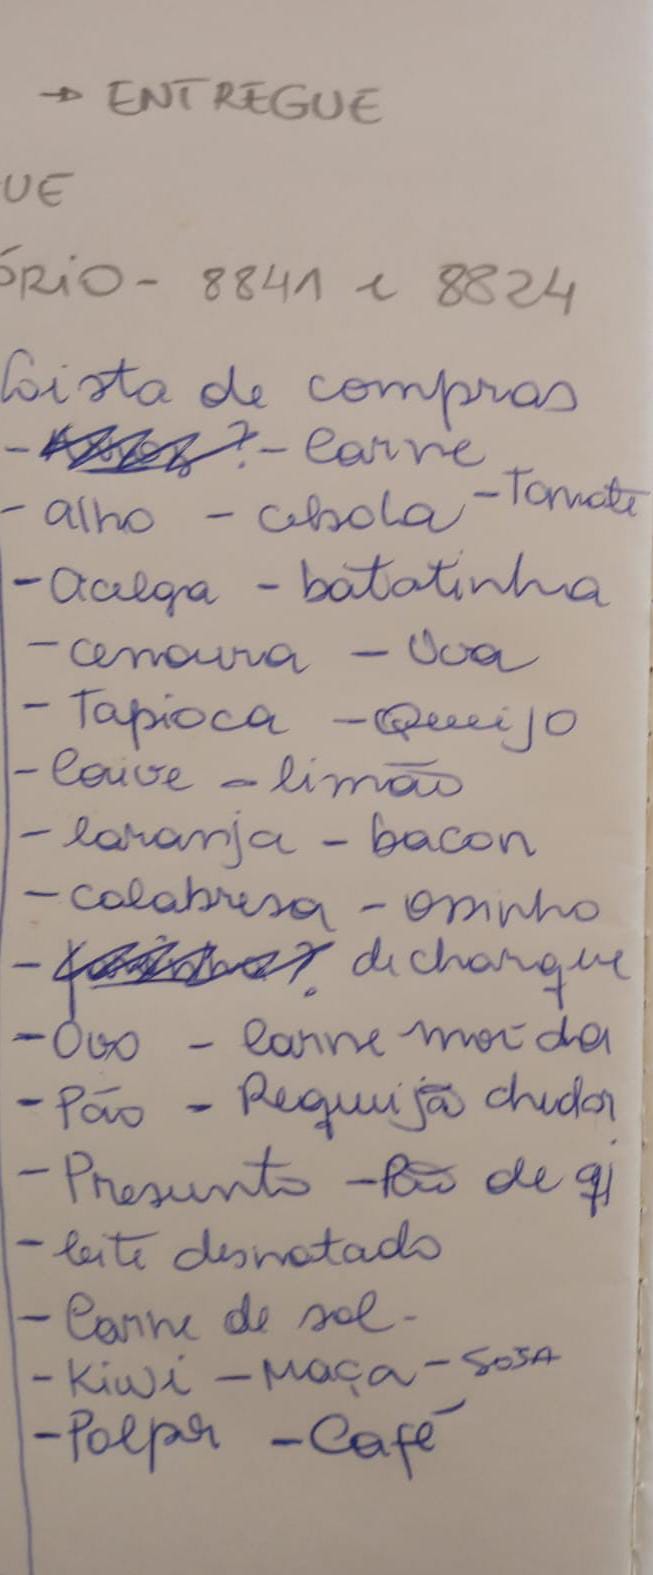 → ENTREGUE
UE
ÓRIO - 8841 e 8824
Lista de compras
- ? - Carne
- alho - cebola - Tomate
- Acelga - batatinha
- cenoura - Uva
- Tapioca - Queijo
- Couve - limão
- laranja - bacon
- calabresa - ossinho
- ? de charque
- Ovo - Carne moída
- Pão - Requeijã chedar
- Presunto - Pão de qj
- leite desnatado
- Carne de sol -
- Kiwi - Maça - SOJA
- Polpa - Café